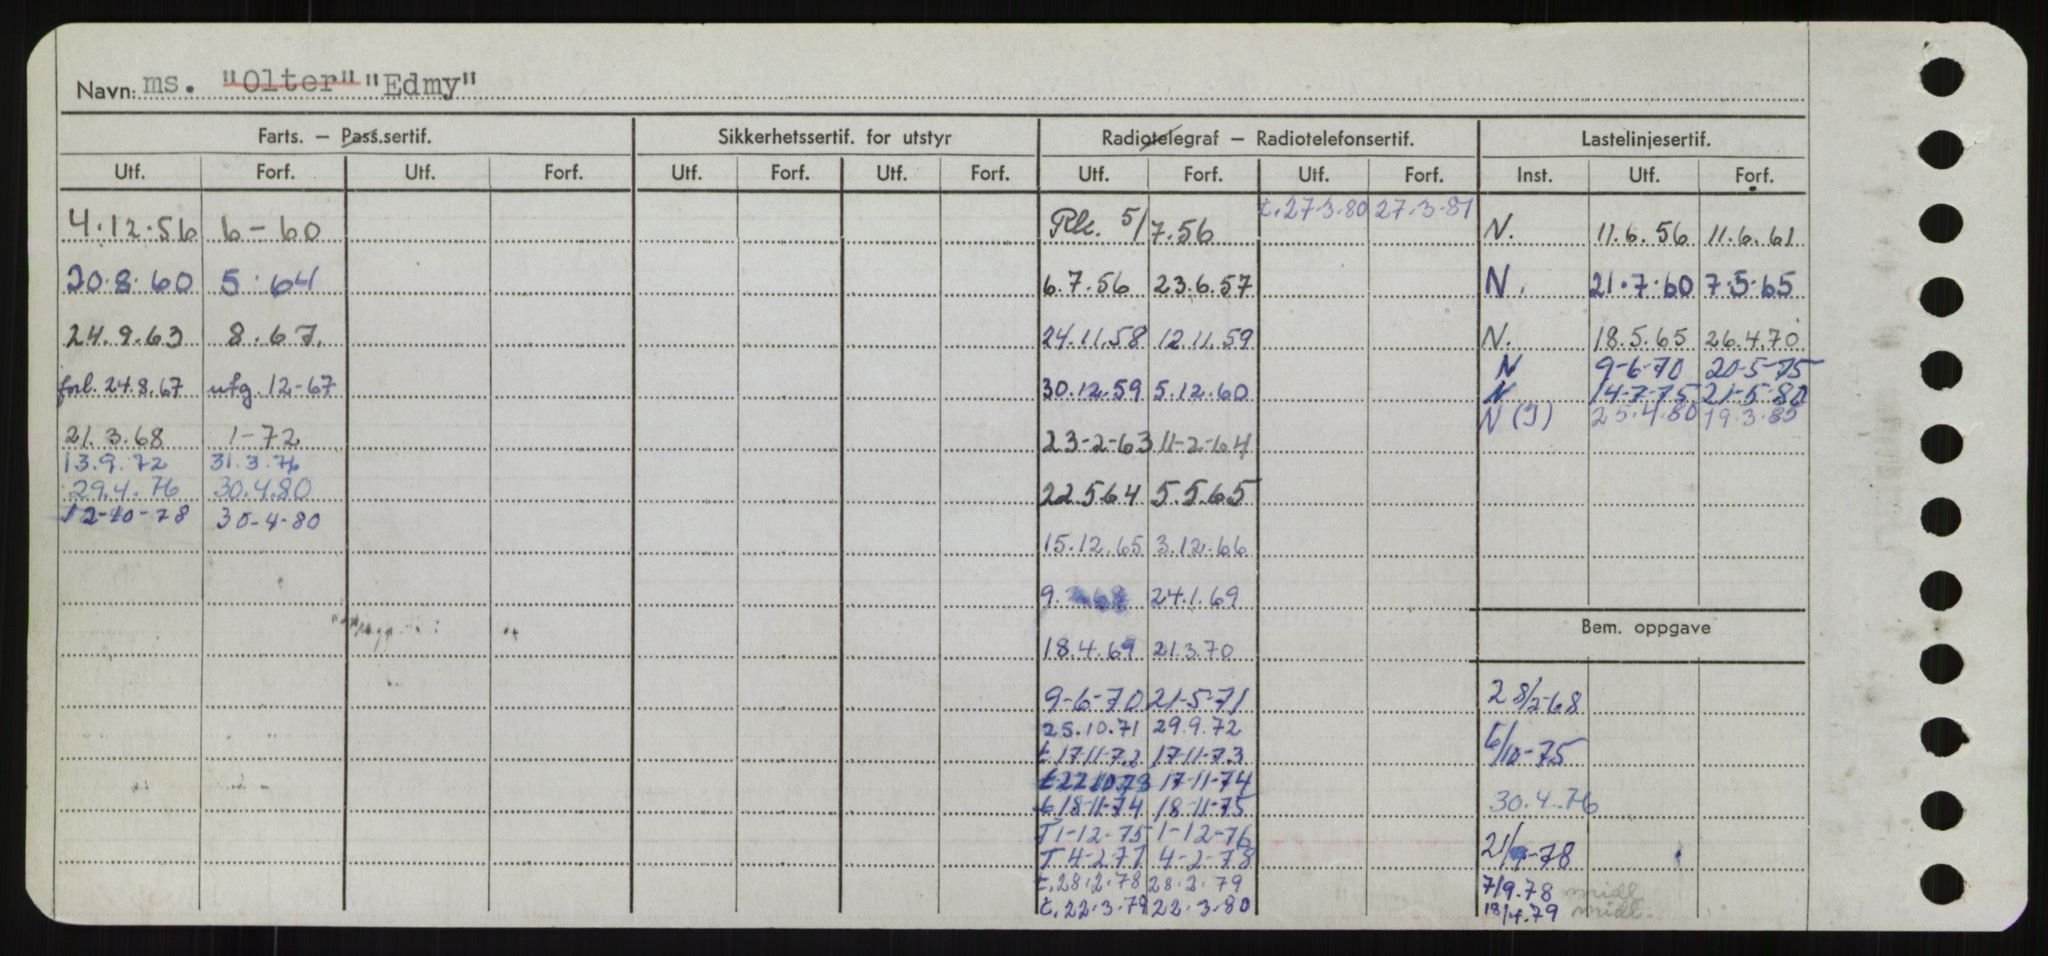 Navn: ms. "Olter" "Edmy"
Farts. — Pass.sertif. Sikkerhetssertif. for utstyr Radiotelegraf — Radiotelefonsertif. Lastelinjesertif.
Utf. Forf. Utf. Forf. Utf. Forf. Utf. Forf. Utf. Forf. Utf. Forf. Inst. Utf. Forf.
t. 27-3-80 27-3-81
4.12.56 6-60 5/7.56 N. 11.6.56 11.6.61
20.8.60 5.64 6.7.56 23.6.57 N. 21.7.60 7.5.65
24.9.63 8.67. 24.11.58 12.11.59 N. 18.5.65 26.4.70
N 9-6-70 20-5-75
forl. 24.8.67 utg. 12-67 30.12.59 5.12.60 N 14-7-75 21-5-80
N (I) 25.4.80 19.3.85
21.3.68 1-72 23-2-63 11-2-64
13.9.72 31.3.76
29.4.76 30.4.80 22.5.64 5.5.65
12-10-78 30-4-80
15.12.65 3.12.66
9. 68 24.1.69
Bem. oppgave
18.4.69 21.3.70
9-6-70 21-5-71 28/2-68
25.10.71 29.9.72
t. 17-11-72 17-11-73 6/10-75
t. 22.10.73 17-11-74
t. 18-11-74 18-11-75 30.4.76
T 1-12-75 1-12-76
T 4-2-77 4-2-78 21/ -78
t. 28.2.78 28.2.79 7/9.78 midl.
t. 22.3.79 22.3.80 18/4.79 midl.